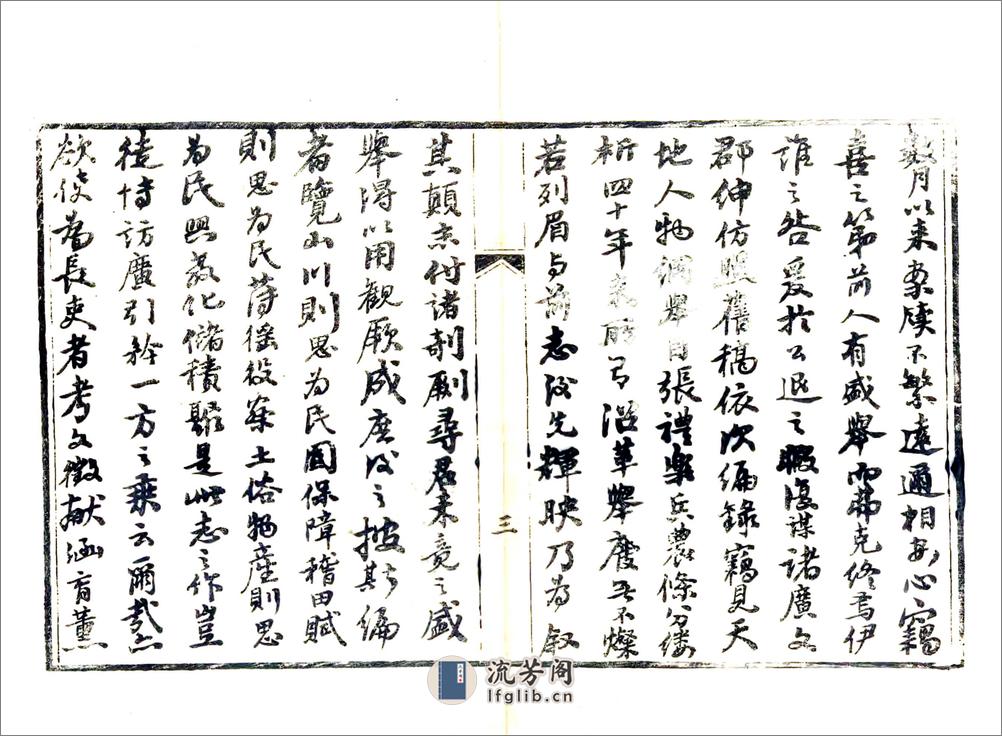 數月以来案牘不繁遠邇相安心竊
喜之第前人有盛舉而弗克終焉伊
誰之咎爰於公退之暇復謀諸廣文
郡紳仿照舊稿依次编錄竊見天
地人物綱舉目張禮樂兵農條分縷
析四十年来所有沿革舉廢無不燦
若列眉与前志後先輝映乃为叙
三
其顛末付諸剞劂尋君未竟之盛
舉得以用觀厥成庶後之披其编
者覽山川則思为民固保障稽田賦
則思为民薄徭役案土俗物産則思
为民興教化儲積聚是此志之作豈
徒博訪廣引矜一方之乘云爾哉
欲使為長吏者考文徵献涵育薰
流芳阁
lfglib.cn